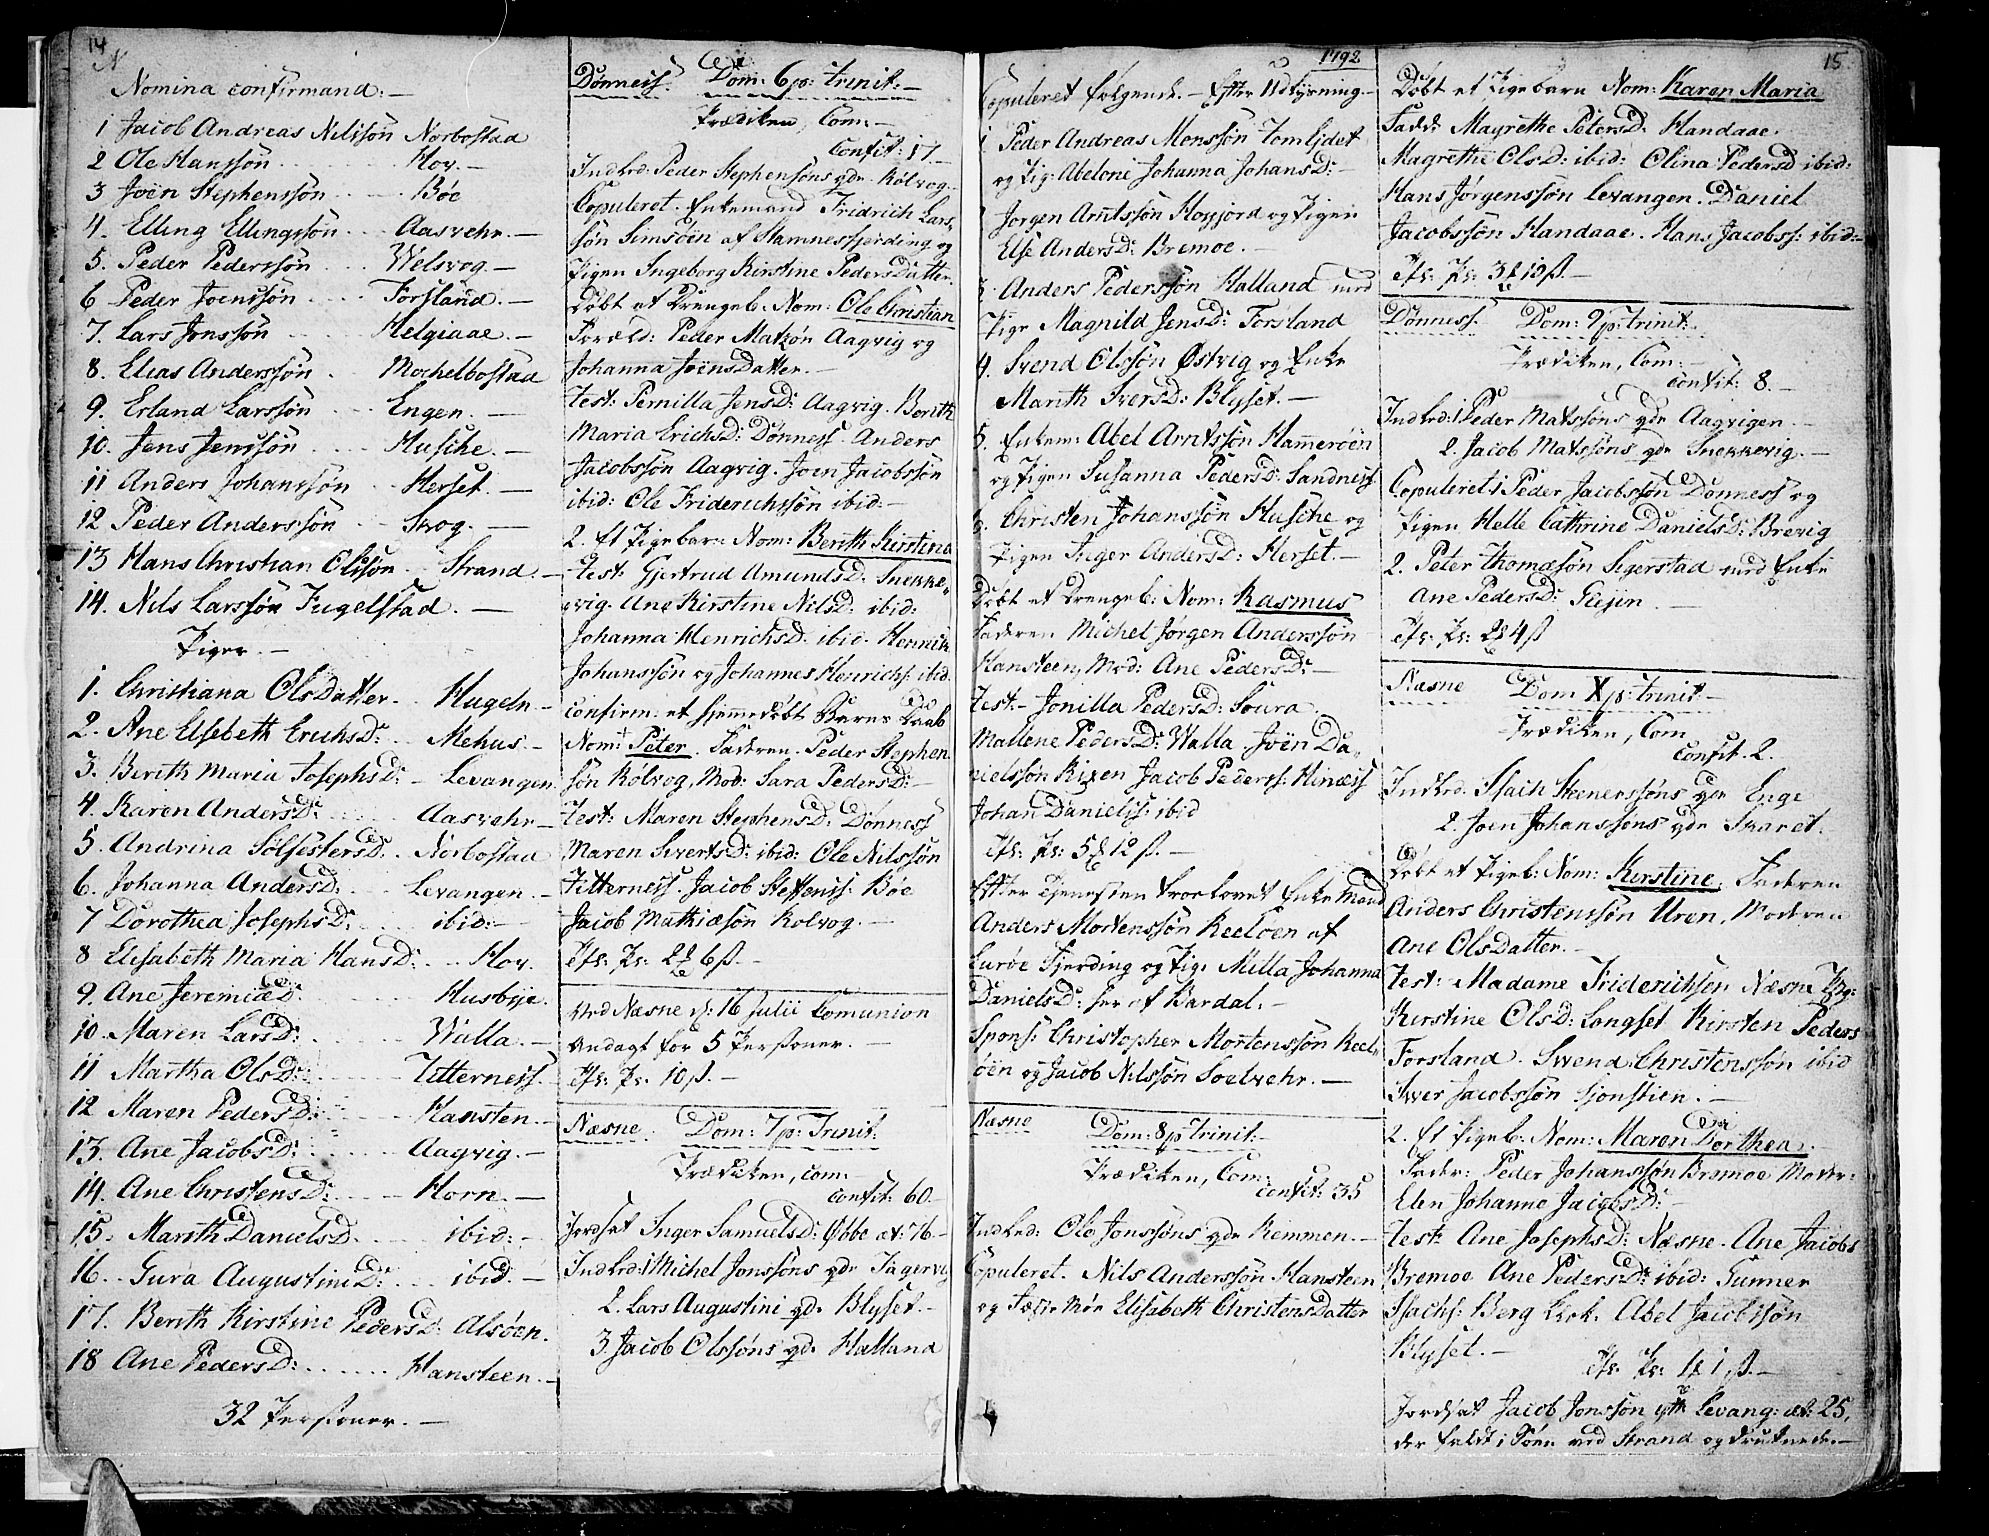 14
N
Nomina confirmand: —
1 Jacob Andreas Nilssön Norbostad
2 Ole Hanssön Hov. —
3 Joen Stephenssön Böe
4. Elling Ellingssön Aasvehr. —
5. Peder Pederssön Welsvog. —
6 Peder Joenssön Forsland. —
7. Lars Jonssön Helgiaae. —
8. Elias Anderssön Mochelbostad
9. Erland Larssön Engen. —
10. Jens Jenssön Husche. —
11 Anders Johanssön Herset. —
12 Peder Anderssön Skog. —
13 Hans Christian Olssön Strand. —
14. Nils Larssön Fugelstad. —
Piger. —
1. Christiana OlsDatter. Hugeln. —
2. Ane Elsebeth ErichsD: Mehus. —
3. Berith Maria JosephsD: Levangen.
4. Karen AndersD: Aasvehr. —
5. Andrina SölfestersD. Norbostad
6. Johanna AndersD: Levangen. —
7 Dorothea JosephsD: ibid: —
8 Elisabeth Maria HansD: Hov.
9. Ane JeremiæD: Husbye.
10. Maren LarsD: Walla. —
11 Martha OlsD: Titterness. —
12 Maren PedersD: Hansten. —
13. Ane JacobsD: Aagvig. —
14. Ane ChristensD: Horn. —
15. Marith DanielsD. ibid: —
16. Gura AugustiniD: ibid. —
17. Berith Kirstine PedersD. Alsöen.
18 Ane PedersD: Hansteen. —
32 Personer. —
Dönness. Dom: 6 p: Trinit: —
Prædiken, Com: —
Confit: 17. —
Indled: Peder Stephensöns qde Kölvog. —
Copuleret. Enkemand Fridrich Lars-
sön Simsöen af Stamnessfierding og
Pigen Ingeborg Kirstine PedersDatter.
Döbt et Drengeb. Nom: Ole Christian
Foræld: Peder Matzön Aagvig og
Johanna JoensDatter. —
Test: Pernilla JensD: Aagvig. Berith
Maria ErichsD: Dönness. Anders
Jacobssön Aagvig. Joen Jacobssön
ibid: Ole Friderichssön ibid: —
2. Et Pigebarn Nom: Berith Kirstina
Test: Gjertrud AmundsD: Snekke-
vig. Ane Kirstine NilsD: ibid:
Johanna HenrichsD. ibid. Henrich
Johanssön og Johannes Henrichs: ibid.
confirm: et hjemmedöbt Barns Daab
Nom: Peter. Faderen. Peder Stephen
sön Kölvog, Mod: Sara PedersD: —
Test: Maren StephensD: Dönness
Maren SivertsD: ibid: Ole Nilssön
Titterness. Jacob Steffenss: Böe
Jacob Mathiæsön Kolvog. —
Ved Næsne d: 16 Julii Comunion
Andagt for 5 Personer. —
10 ß. —
Næsne. Dom: 7 p: Trinit:
Prædiken, com:
confit: 60. —
Jordsat Inger SamuelsD: Öbbe æt: 76. —
Indled: 1 Michel Jonssöns qde Jagervig
2. Lars Augustini qde Blyset. —
3. Jacob Olssöns qde Halland
1792
Copuleret fölgende. — Efter Udlysning —
1 Peder Andreas Monssön Tomljdet
og Pig: Abelone Johanna JohansD: —
Jörgen Arntssön Hogjord og Pigen
Else AndersD: Bremoe. —
3. Anders Pederssön Halland med
Pige Magnild JensD: Forsland
4. Svend Olssön Östvig og Enke
Marith IversD: Blyset. —
5. Enkem: Abel Arntssön Hammeröen
og Pigen Susanna PedersD: Sandness
6. Christen Johanssön Husche og
Pigen Inger AndersD: Herset. —
Döbt et Drengeb: Nom: Rasmus
Faderen Michel Jörgen Anderssön
Hansteen, Mod: Ane PedersD: —
Test: — Jonilla PedersD: Soura.
Mallene PedersD: Walla. Joën Da-
nielssön Rixen Jacob Pederss: Hinæss
Johan Danielss: ibid
Efter Tjenesten Troelovet Enke Mand
Anders Mortenssön Reelöen af
Luröe Fjerding og Pig: Milla Johanna
DanielsD: her af Bardal. —
Spons: Christopher Mortenssön Reel-
öen og Jacob Nilssön Solvehr. —
Næsne Dom: 8 p Trinit: —
Prædiken, Com:
Confit: 35
Indled: Ole Jonssöns qde Remmen. —
Copuleret. Nils Anderssön Hansteen
og Fæste Möe Elisabeth ChristensDatter
15
Döbt et Pigebarn Nom: Karen Maria
Fadd: Magrethe PetersD. Handaae.
Magrethe OlsD: ibid: Olina PedersD ibid:
Hans Jörgenssön Levangen. Daniel
Jacobssön Handaae. Hans Jacobss: ibid: —
Dönness. Dom: 9 p: Trinit:
Prædiken, Com: —
confit: 8. —
Indled: 1 Peder Matssöns qde Aagvigen. —
2. Jacob Matssöns qde Snekkevig. —
Copuleret 1 Peder Jacobssön Dönness og
Pigen Helle Cathrine DanielsD: Brevig
2. Peter Thomæsön Sigerstad med Enke
Ane PedersD: Glejin. —
Næsne Dom X p: Trinit: —
Prædiken, Com
Confit. 2.
Indled. Isach Steenerssöns qde Enge
2. Joen Johanssöns qde Skaret.
Döbt et Pigeb: Nom: Kirstine. Faderen
Anders Christenssön Uren, Moderen
Ane OlsDatter. —
Test: Madame Friderichsön Næsne Pig:
Kirstine OlsD: Langset Kirsten Peders
Forsland. Swend Christenssön ibid
Iwer Jacobssön Sjonstien. —
2. Et Pigeb: Nom: Maren Dorthea.
Fader: Peder Johanssön Bremoe Moder:
Elen Johanna JacobsD: —
Test: Ane JosephsD: Næsne. Ane Jacobs
Bremoe Ane PedersD: ibid: Gunner
Isachs: Berg Abel Jacobssön
Blyset. —
Jordsat Jacob Jonssön Levang: æt: 25,
der faldt i Söen ved Strand og druknede. —